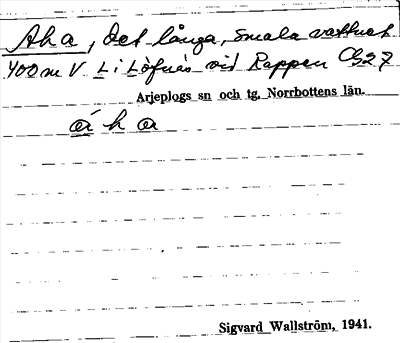 Aha, det långa, smala vattnet
400 m V L i Löfnäs vid Rappen
Arjeplogs sn och tg, Norrbottens län.
áha
Sigvard Wallström, 1941.